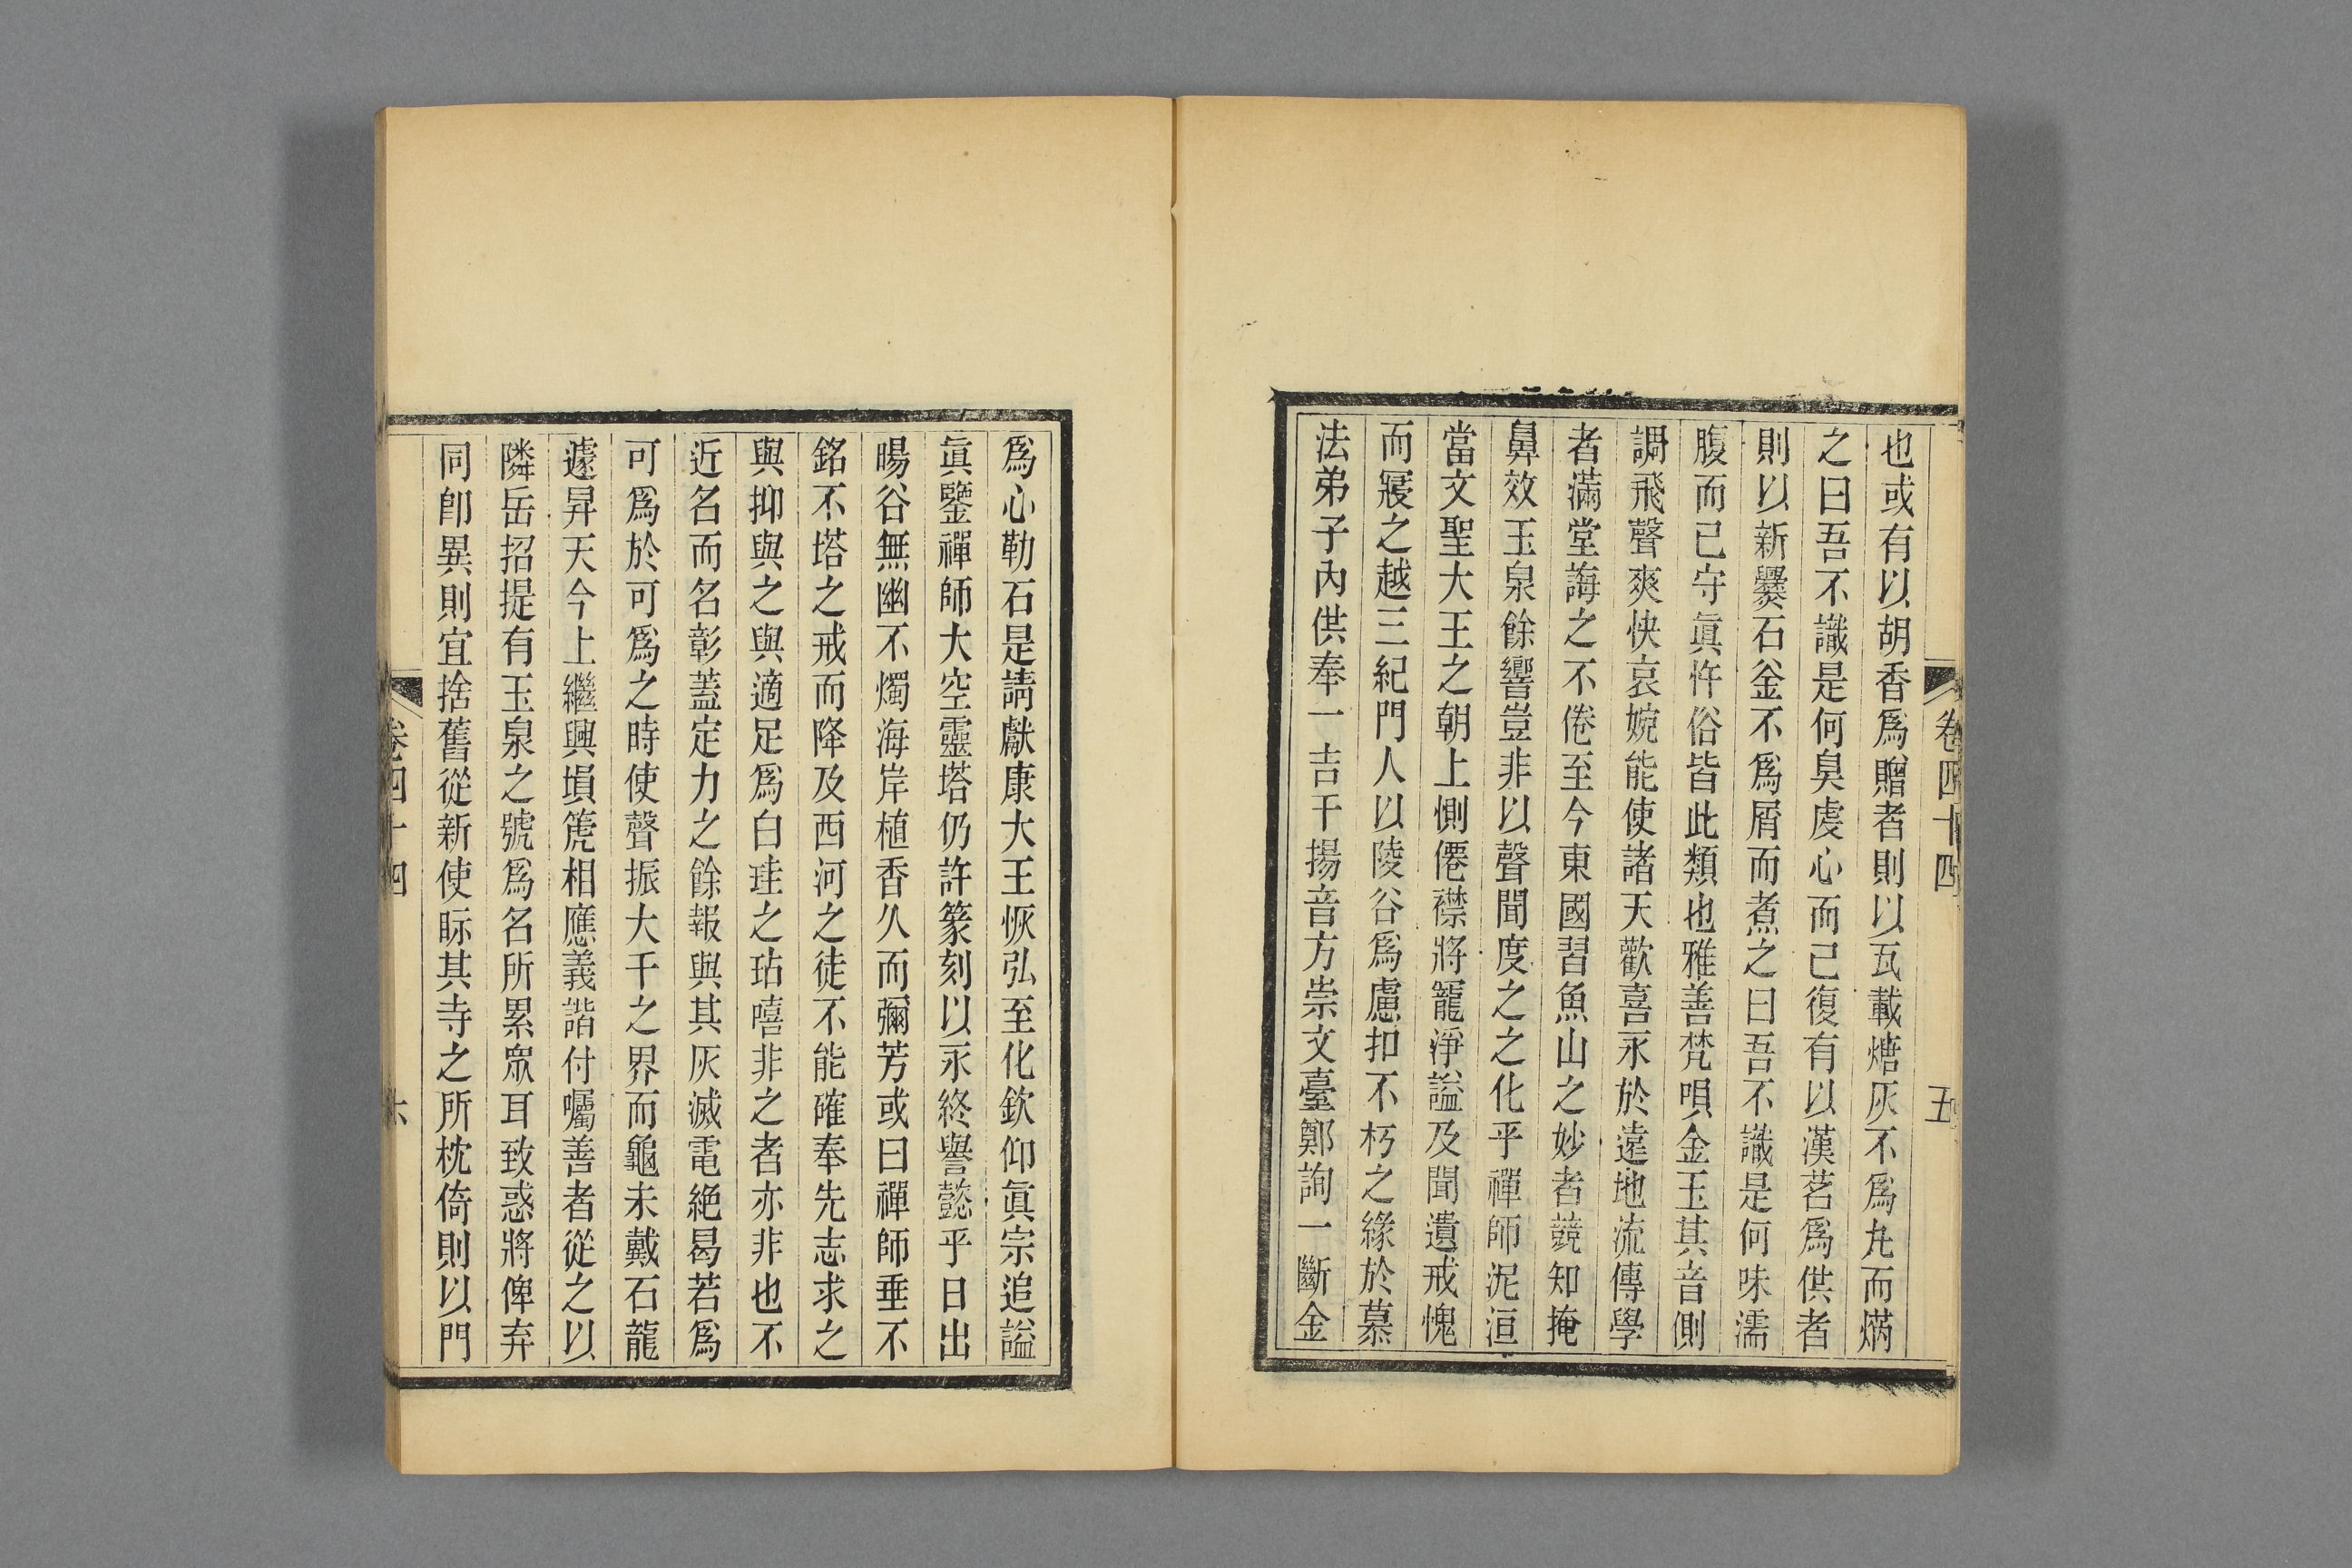 也或有以胡香爲贈者則以瓦載煻灰不爲丸而焫
之曰吾不識是何臭虔心而已復有以漢茗爲供者
則以新爨石釜不爲屑而煮之曰吾不識是何味濡
腹而已守眞忤俗皆此類也雅善梵唄金玉其音側
調飛聲爽快哀婉能使諸天歡喜永於遠地流傳學
者滿堂誨之不倦至今東國習魚山之妙者競知掩
鼻效玉泉餘響豈非以聲聞度之之化乎禪師泥洹
當文聖大王之朝上惻僊襟將寵淨謚及聞遺戒愧
而寢之越三紀門人以陵谷爲慮扣不朽之緣於慕
法弟子內供奉一吉干揚音方崇文臺鄭詢一斷金
卷四十四
五
爲心勒石是請獻康大王恢弘至化欽仰眞宗追謚
眞鑒禪師大空靈塔仍許篆刻以永終譽懿乎日出
暘谷無幽不燭海岸植香久而彌芳或曰禪師垂不
銘不塔之戒而降及西河之徒不能確奉先志求之
與抑與之與適足爲白珪之玷嘻非之者亦非也不
近名而名彰蓋定力之餘報與其灰滅電絶曷若爲
可爲於可爲之時使聲振大千之界而龜未戴石龍
遽昇天今上繼興塤篪相應義諧付囑善者從之以
隣岳招提有玉泉之號爲名所累眾耳致惑將俾弃
同卽異則宜捨舊從新使眎其寺之所枕倚則以門
卷四十四
六